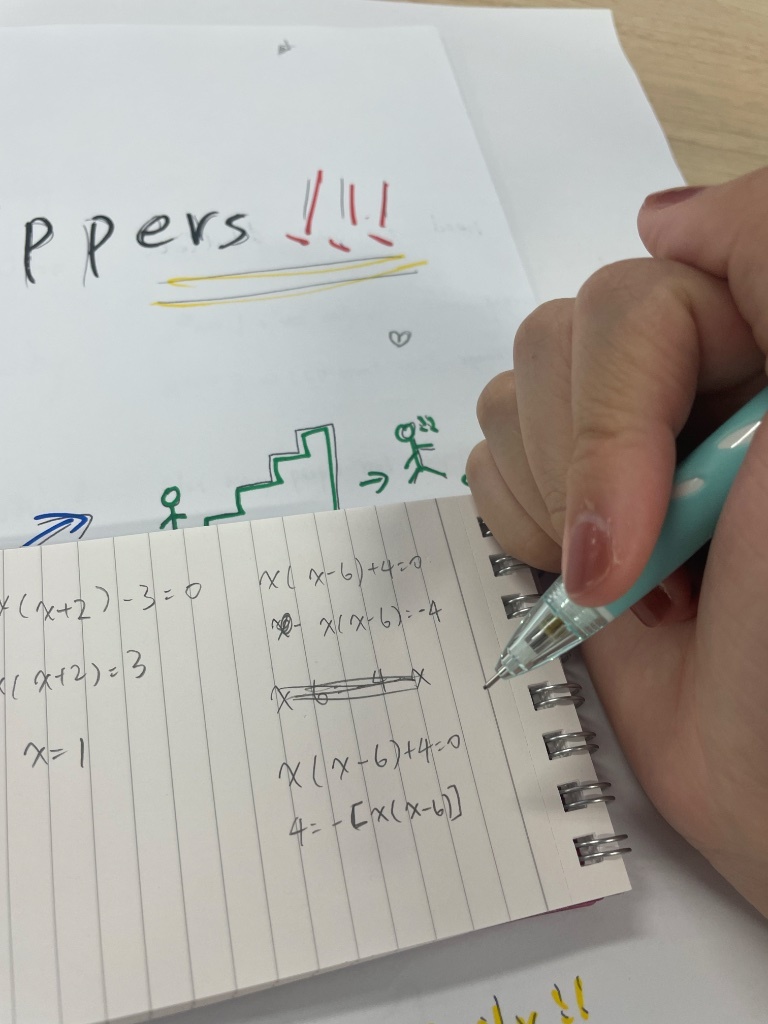 ppers !!!
x(x+2)-3=0
x(x+2)=3
x=1
x(x-6)+4=0
x(x-6)=-4
x(x-6)+4=0
4=-[x(x-6)]